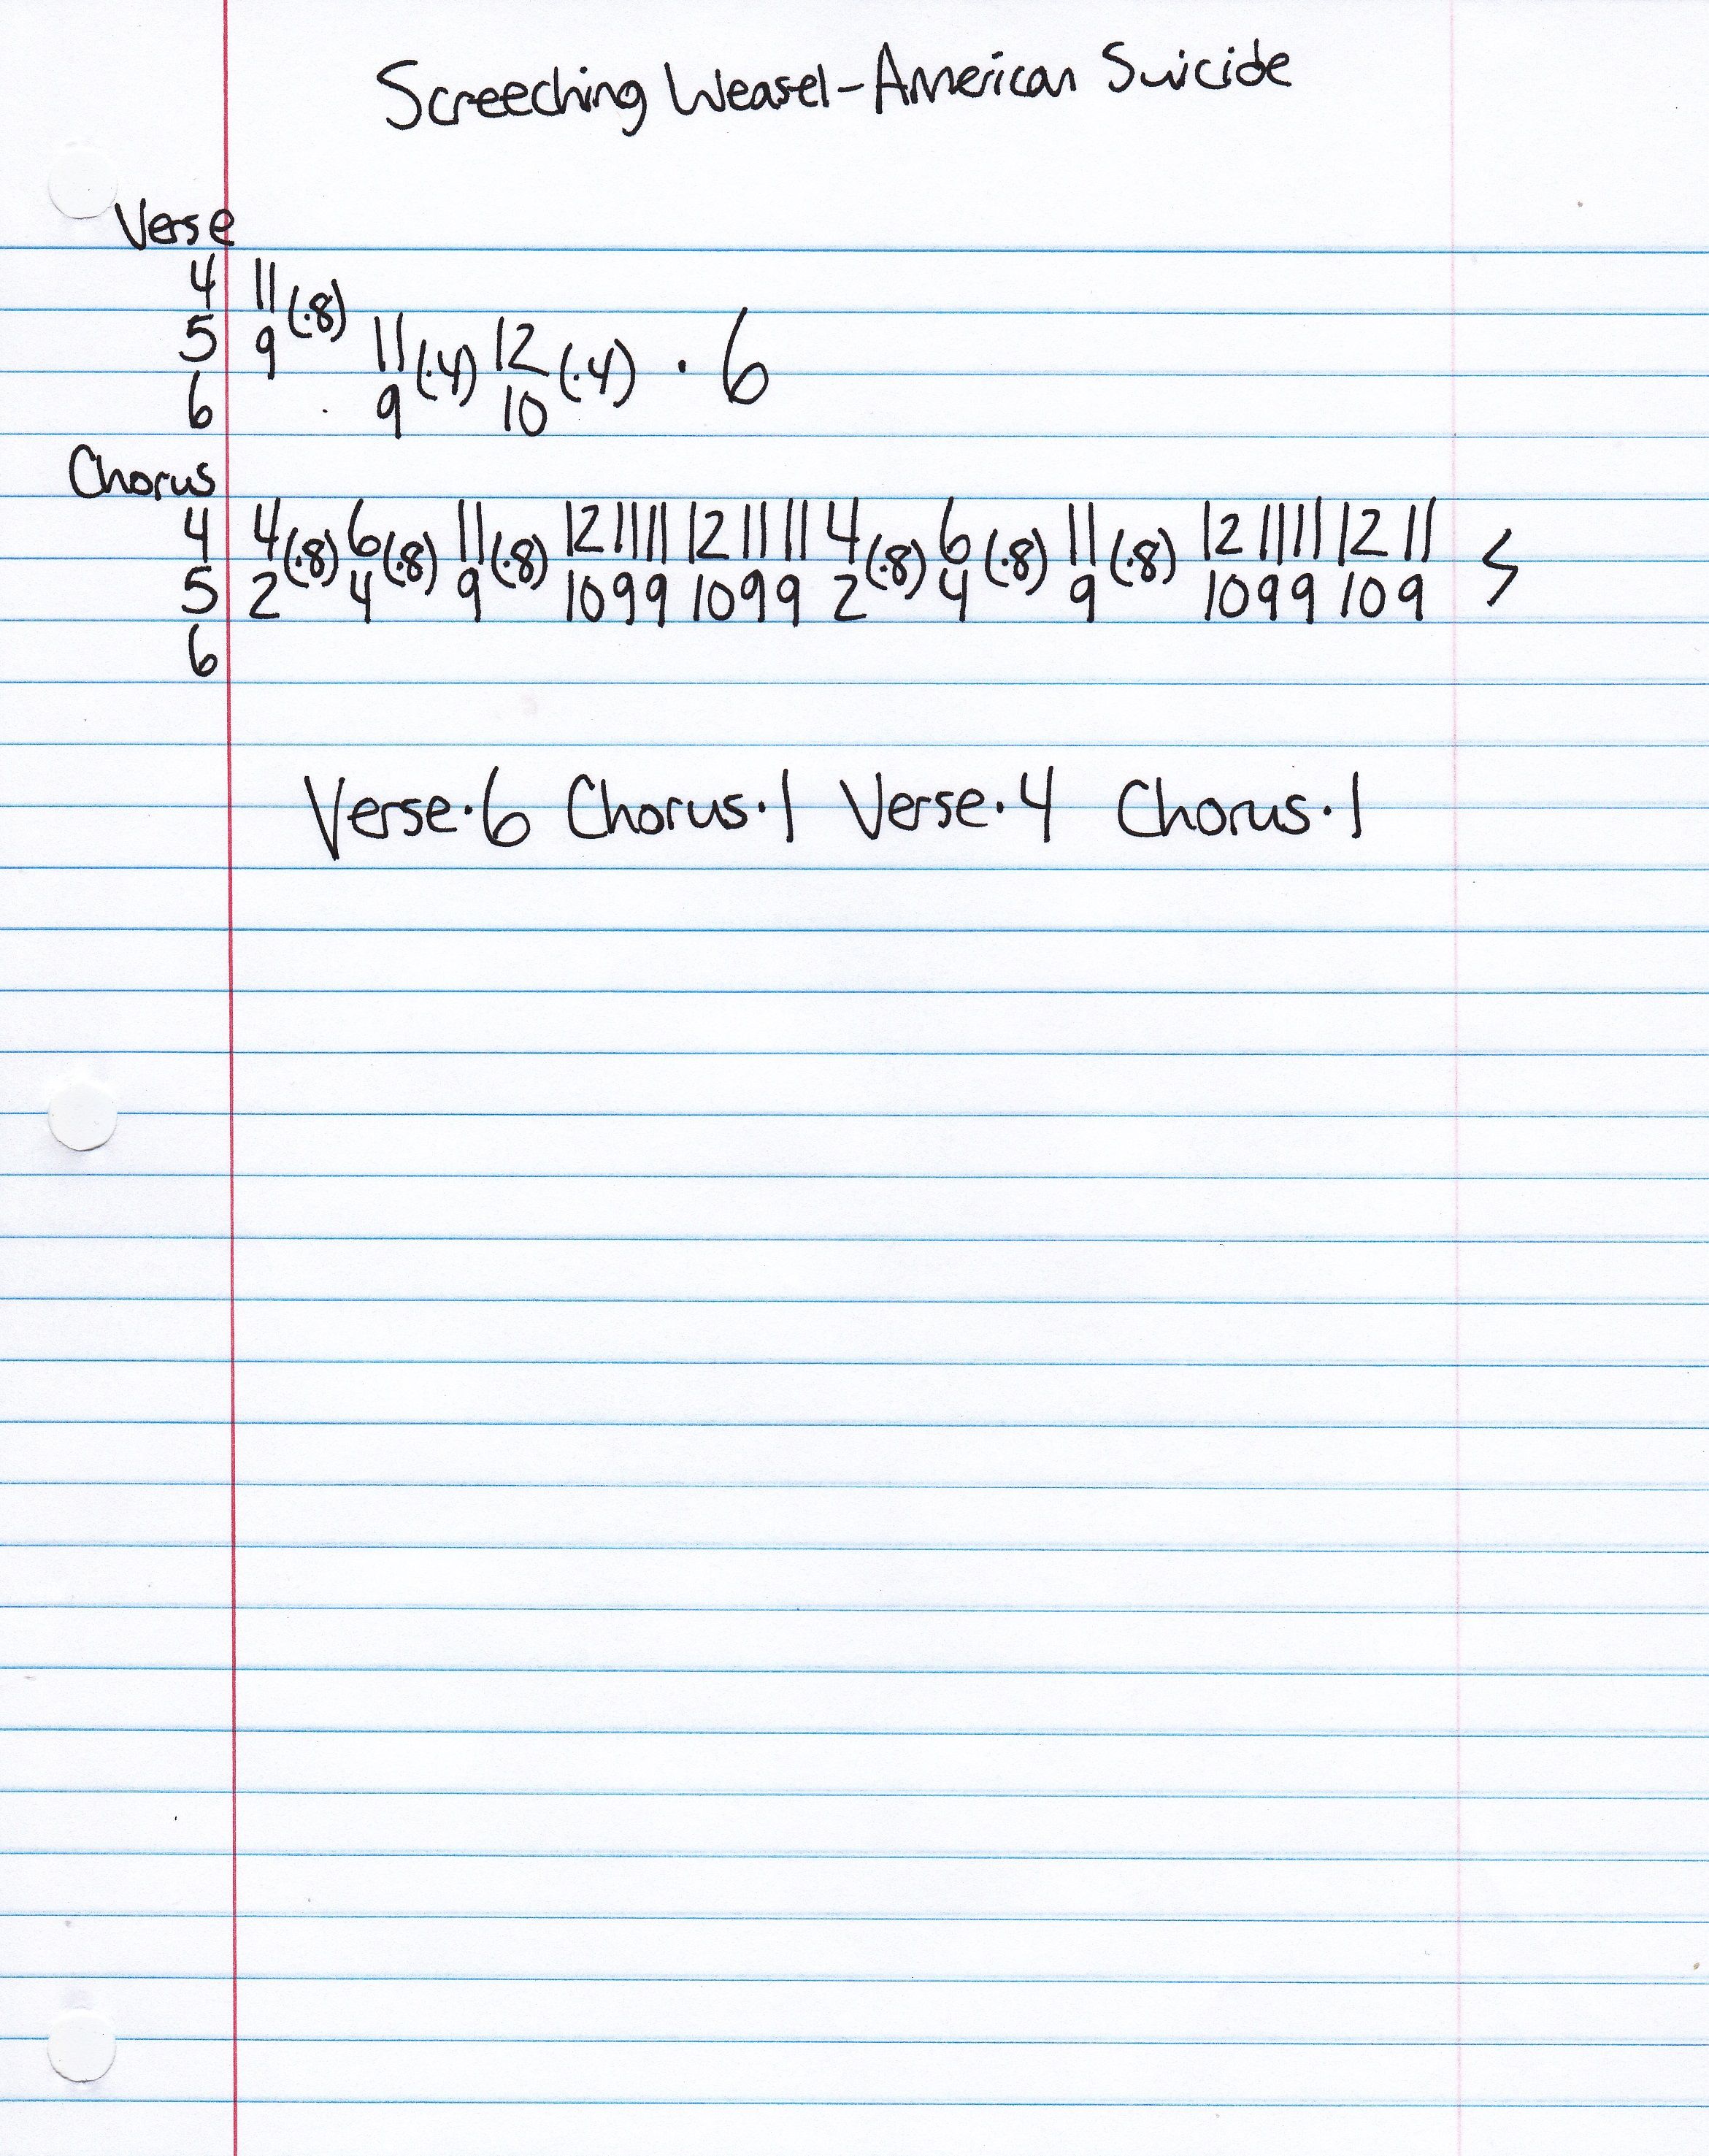 Screeching Weasel-American Suicide
Verse
4 11
5 9 (·8) 11 12
6 9 (·4) 10 (·4) · 6
Chorus
4 4 (·8) 6 (·8) 11 (·8) 12 11 11 12 11 11 4 (·8) 6 (·8) 11 (·8) 12 11 11 12 11
5 2 4 9 10 9 9 10 9 9 2 4 9 10 9 9 10 9
6
Verse·6 Chorus·1 Verse·4 Chorus·1